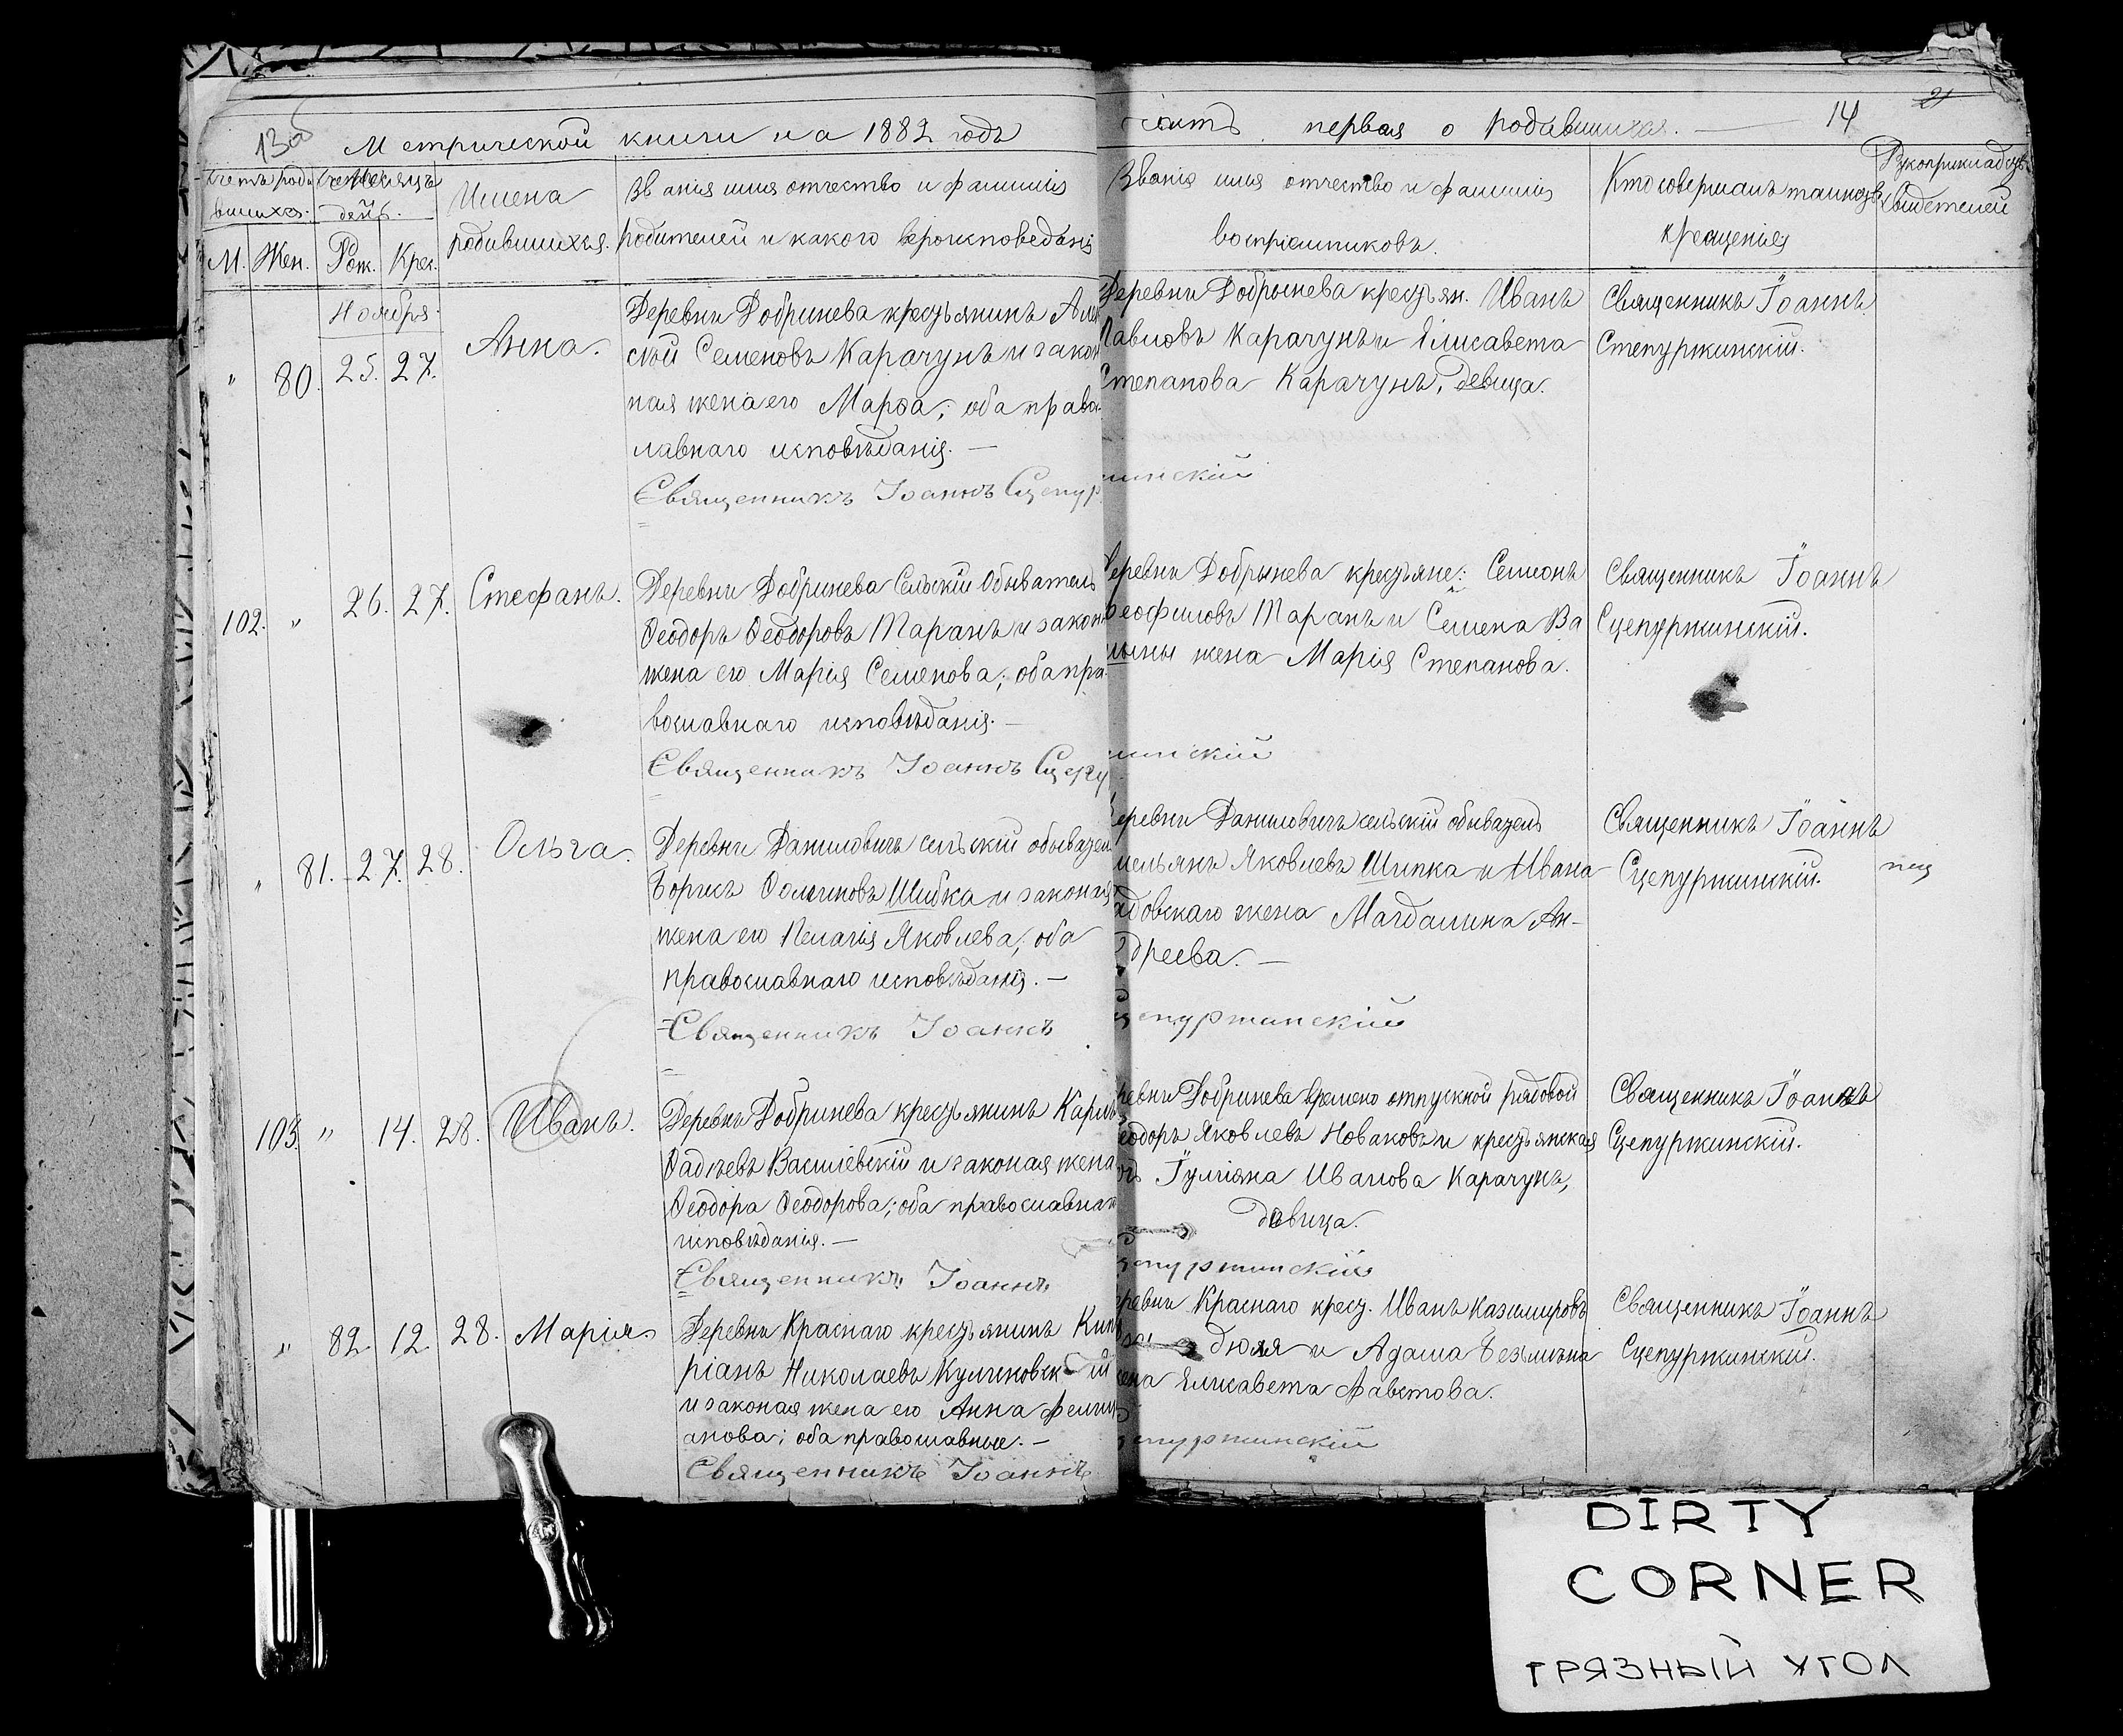 13об
Метрической книги на 1882 годъ
часть первая о родившихся. 14
21
Счетъ роди
вшихся.
Месяцъ
день.
Имена
родившихся.
Званія имя отчество и фамиліи
родителей и какого вероисповеданія
М. Жен. Рож. Крещ.
Званія имя отчество и фамилія
воспріемниковъ.
Кто совершалъ таинство
крещенія
Рукоприкладство
свидетелей
Ноября.
" 80. 25. 27. Анна.
Деревни Добринева крестьянинъ Алек
сѣй Семеновъ Карачунъ и закон
ная жена его Марѳа; оба право
лавнаго исповѣданія. —
Священникъ Іоаннъ Сцепур
Деревни Добрынева крестьян. Иванъ
Павловъ Карачунъ и Елисавета
Степанова Карачунъ, девица.
жинскій
Священникъ Іоаннъ
Степуржинскій.
102. " 26. 27. Стефанъ.
Деревни Добринева Сельскій Обыватель
Ѳеодоръ Ѳеодоровъ Таранъ и закон
жена его Марія Семенова; оба пра-
вославнаго исповѣданія. —
Священникъ Іоаннъ Сцепу
Деревни Добрынева крестьяне: Семенъ
Ѳеофиловъ Таранъ и Семена Ва
жена Марія Степанова.
жинскій
Священникъ Іоаннъ
Сцепуржинскій.
" 81. 27. 28. Ольга.
Деревни Даниловичъ сельскій обывател
Борисъ Шибка и законная
жена его Пелагія Яковлева; оба
православнаго исповѣданія. —
Священникъ Іоаннъ
еревни Даниловичъ сельскій обыватель
мельянъ Яковлевъ Шипка и Ивана
адовскаго жена Магдалина Ан-
дреева. —
сцепуржинскій
Священникъ Іоаннъ
Сцепуржинскій.
103. " 14. 28. Иванъ.
Деревни Добринева крестьянинъ Карлъ
Ѳадѣевъ Василевскій и законая жена
Ѳеодора Ѳеодорова; оба православнаго
исповѣданія. —
Священникъ Іоаннъ
ревни Добринева времено отпускной рядовой
еодоръ Яковлевъ Новаковъ и крестьянская
Іуліяна Иванова Карачунъ,
дѣвица.
цепуржинскій
Священникъ Іоаннъ
Сцепуржинскій.
" 82. 12. 28. Марія
Деревни Краснаго крестьянинъ Кип
ріанъ Николаевъ Куликовскій
и законая жена его Анна Фелиц
анова; оба православные. —
Священникъ Іоаннъ
еревни Краснаго крест. Иванъ Казимировъ
дюля и Адама
жена Елисавета Фавстова.
цепуржинскій
Священникъ Іоаннъ
Сцепуржинскій.
DIRTY
CORNER
ГРЯЗНЫЙ УГОЛ